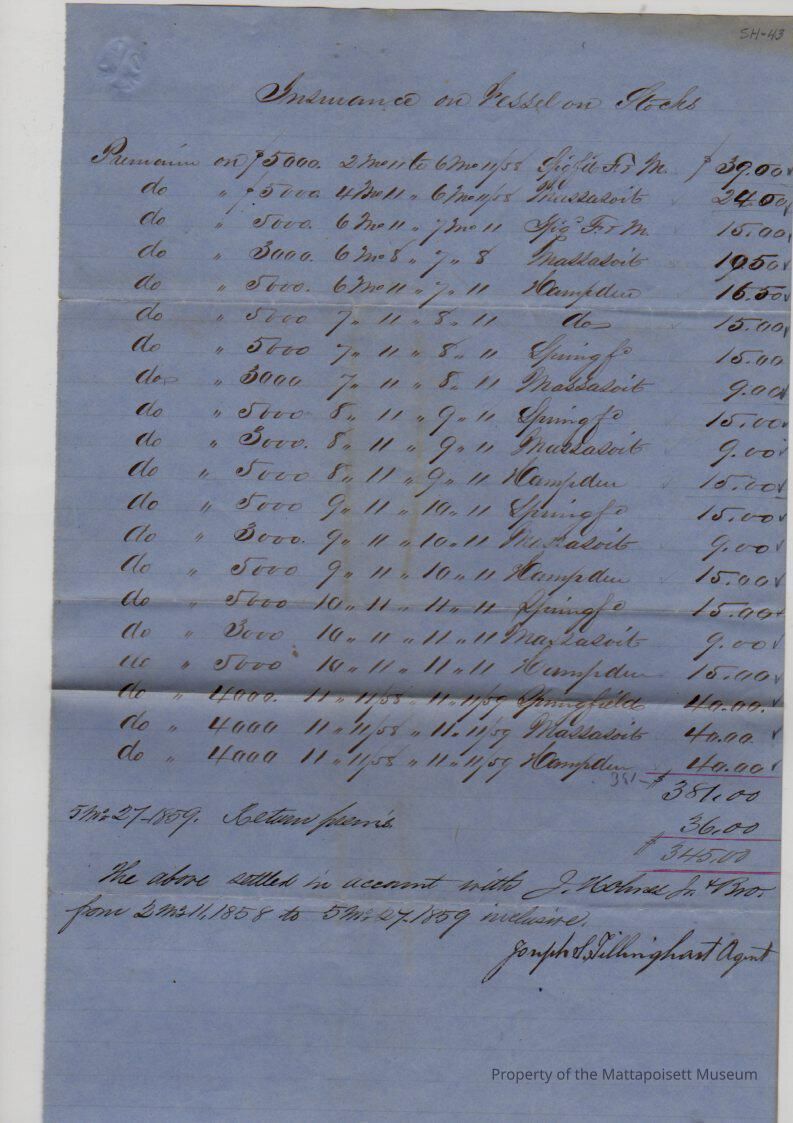 SH-43
Insurance on Vessel on Stocks
Premium on $5000. 2 Mo 11 to 6 Mo 11/58 Spgfd F & M. $39.00
do " $5000 4 Mo 11 " 6 Mo 11/58 Massasoit 24.00
do " 5000. 6 Mo 11 " 7 Mo 11 Spgd F & M. 15.00
do " 3000. 6 Mo 8 " 7 " 8 Massasoit 10.50
do " 5000. 6 Mo 11 " 7 " 11 Hampden 16.50
do " 5000 7 " 11 " 8 " 11 do 15.00
do " 5000 7 " 11 " 8 " 11 Springfd 15.00
do " 3000 7 " 11 " 8 " 11 Massasoit 9.00
do " 5000 8 " 11 " 9 " 11 Springfd 15.00
do " 3000. 8 " 11 " 9 " 11 Massasoit 9.00
do " 5000 8 " 11 " 9 " 11 Hampden 15.00
do " 5000 9 " 11 " 10 " 11 Springfd 15.00
do " 3000. 9 " 11 " 10 " 11 Massasoit 9.00
do " 5000 9 " 11 " 10 " 11 Hampden 15.00
do " 5000 10 " 11 " 11 " 11 Springfd 15.00
do " 3000 10 " 11 " 11 " 11 Massasoit 9.00
do " 5000 10 " 11 " 11 " 11 Hampden 15.00
do " 4000. 11 " 11/58 " 11 " 11/59 Springfield 40.00
do " 4000 11 " 11/58 " 11 " 11/59 Massasoit 40.00
do " 4000 11 " 11/58 " 11 " 11/59 Hampden 40.00
381 $381.00
5 Mo 27-1859. Return prems. 36.00
$345.00
The above settled in account with J. Holmes Jr. & Bro.
from 2 Mo 11, 1858 to 5 Mo 27. 1859 inclusive.
Joseph S. Tillinghast Agent
Property of the Mattapoisett Museum